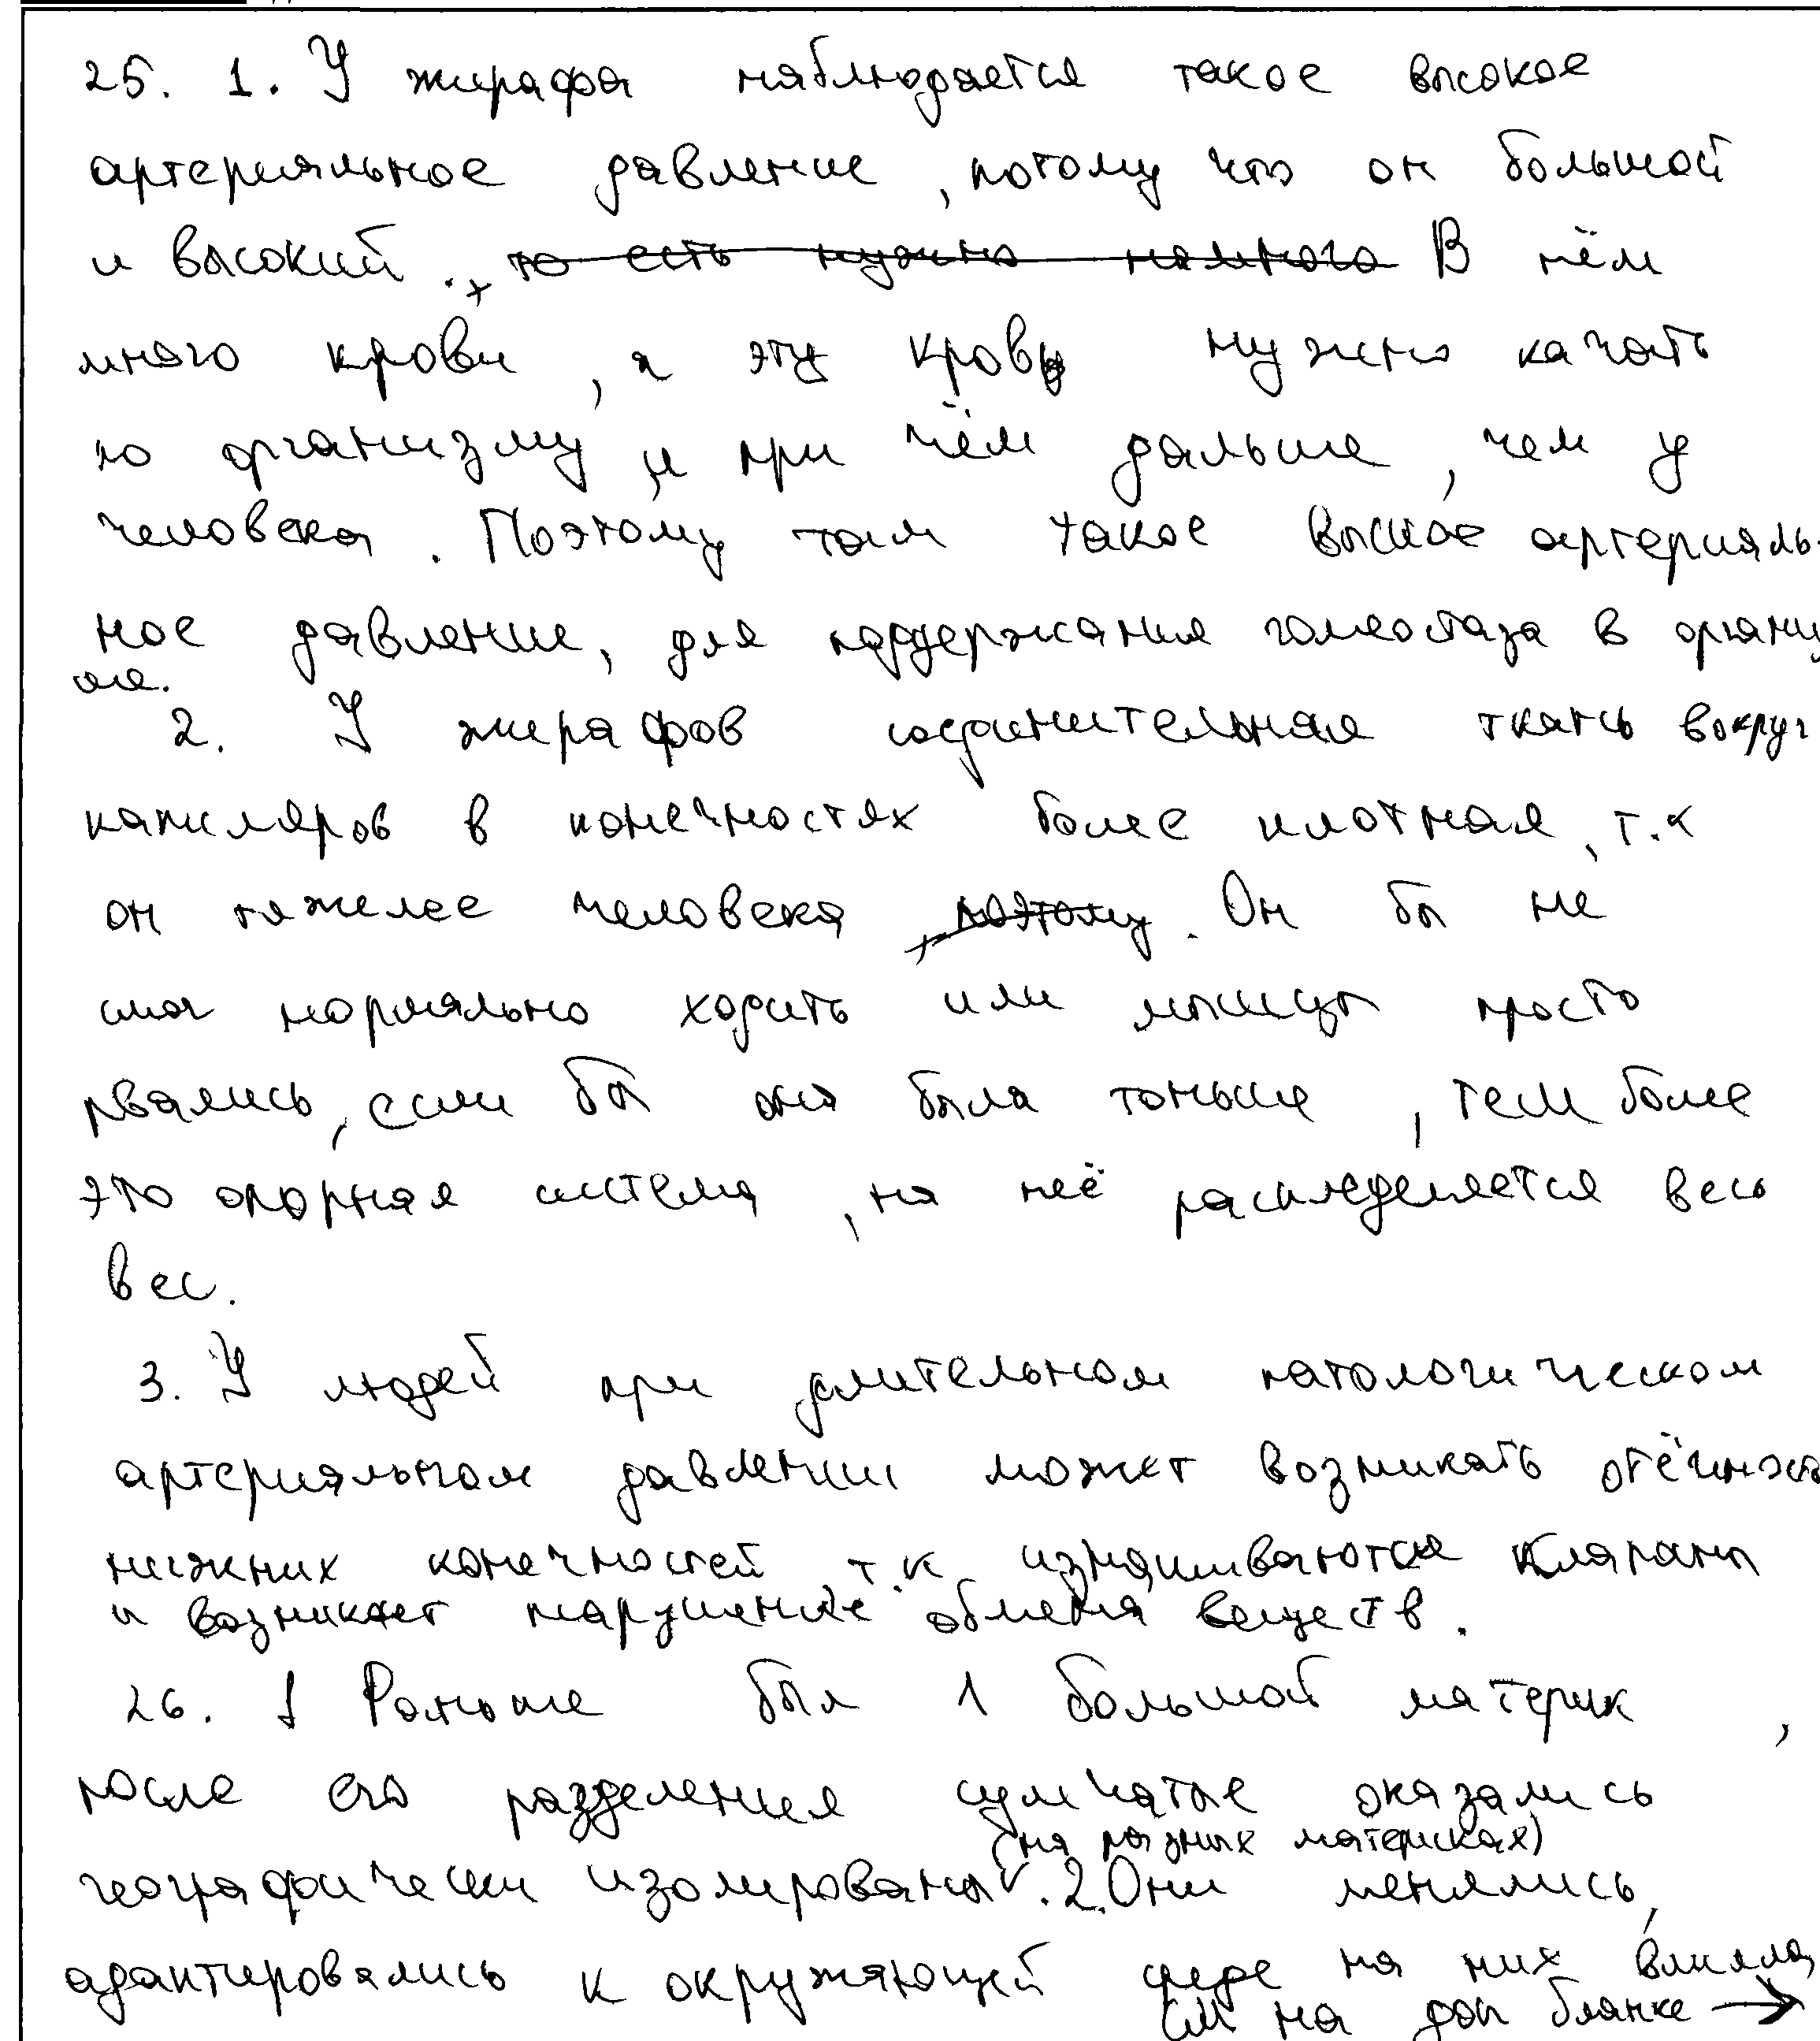 25. 1. У жирафа наблюдается такое высокое
артериальное давление, потому что он большой
и высокий. ~~то есть нужно намного~~ В нём
много крови, а эту кровь нужно качать
по организму, и при чём дальше, чем у
человека. Поэтому там такое высокое артериаль-
ное давление, для поддержания гомеостаза в организ
ме.
2. У жирафов соединительная ткань вокруг
капиляров в конечностях более плотная, т.к
он тяжелее человека ~~, поэтому~~. Он бы не
смог нормально ходить или мышцы просто
рвались, если бы она была тоньше, тем более
это опорная система, на неё распределяется весь
вес.
3. У людей при длительном патологическом
артериальном давлении может возникать отёчность
нижних конечностей т.к изнашиваются клапаны
и возникает нарушение обмена веществ.
26. 1 Раньше был 1 большой материк,
после его разделения сумчатые оказались
(на разных материках)
географически изолированы. 2. Они менялись,
адаптировались к окружающей среде на них влияла
см на доп бланке →